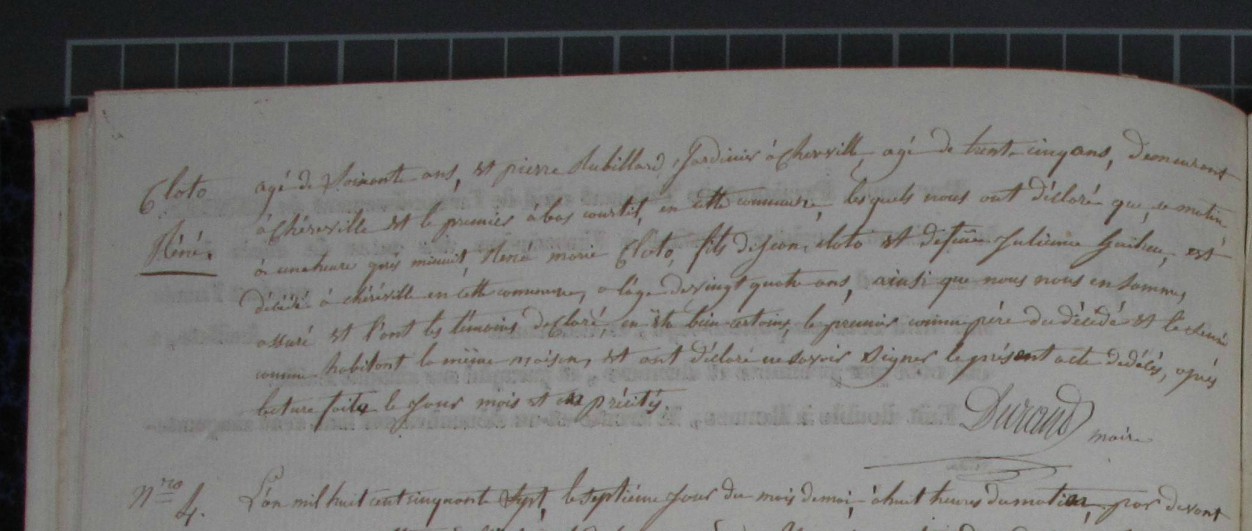 Cloto
Réné.
agé de Soixante ans, et pierre Rubillard, Jardinier à Cherville, agé de trente cinq ans, demeurant
à Chéréville et le premier à bas courtil, en cette commune, lesquels nous ont déclaré que, ce matin
à une heure après minuit, Réné marie Cloto, fils de Jean cloto et defunte Julienne est
décédé à chéréville en cette commune, a l'âge de vingt quatre ans, ainsi que nous nous en sommes
assuré et l'ont les témoins declaré, en être bien certains, le premier comme père du décédé et le
comme habitant la même maison, et ont déclaré ne savoir signer le présent acte de décès, après
lecture faite le jour mois et an précités.
Durand maire
Nro 4. L'an mil huit cent cinquante Sept, le septième jour du mois de mai, à huit heures du matin, par devant